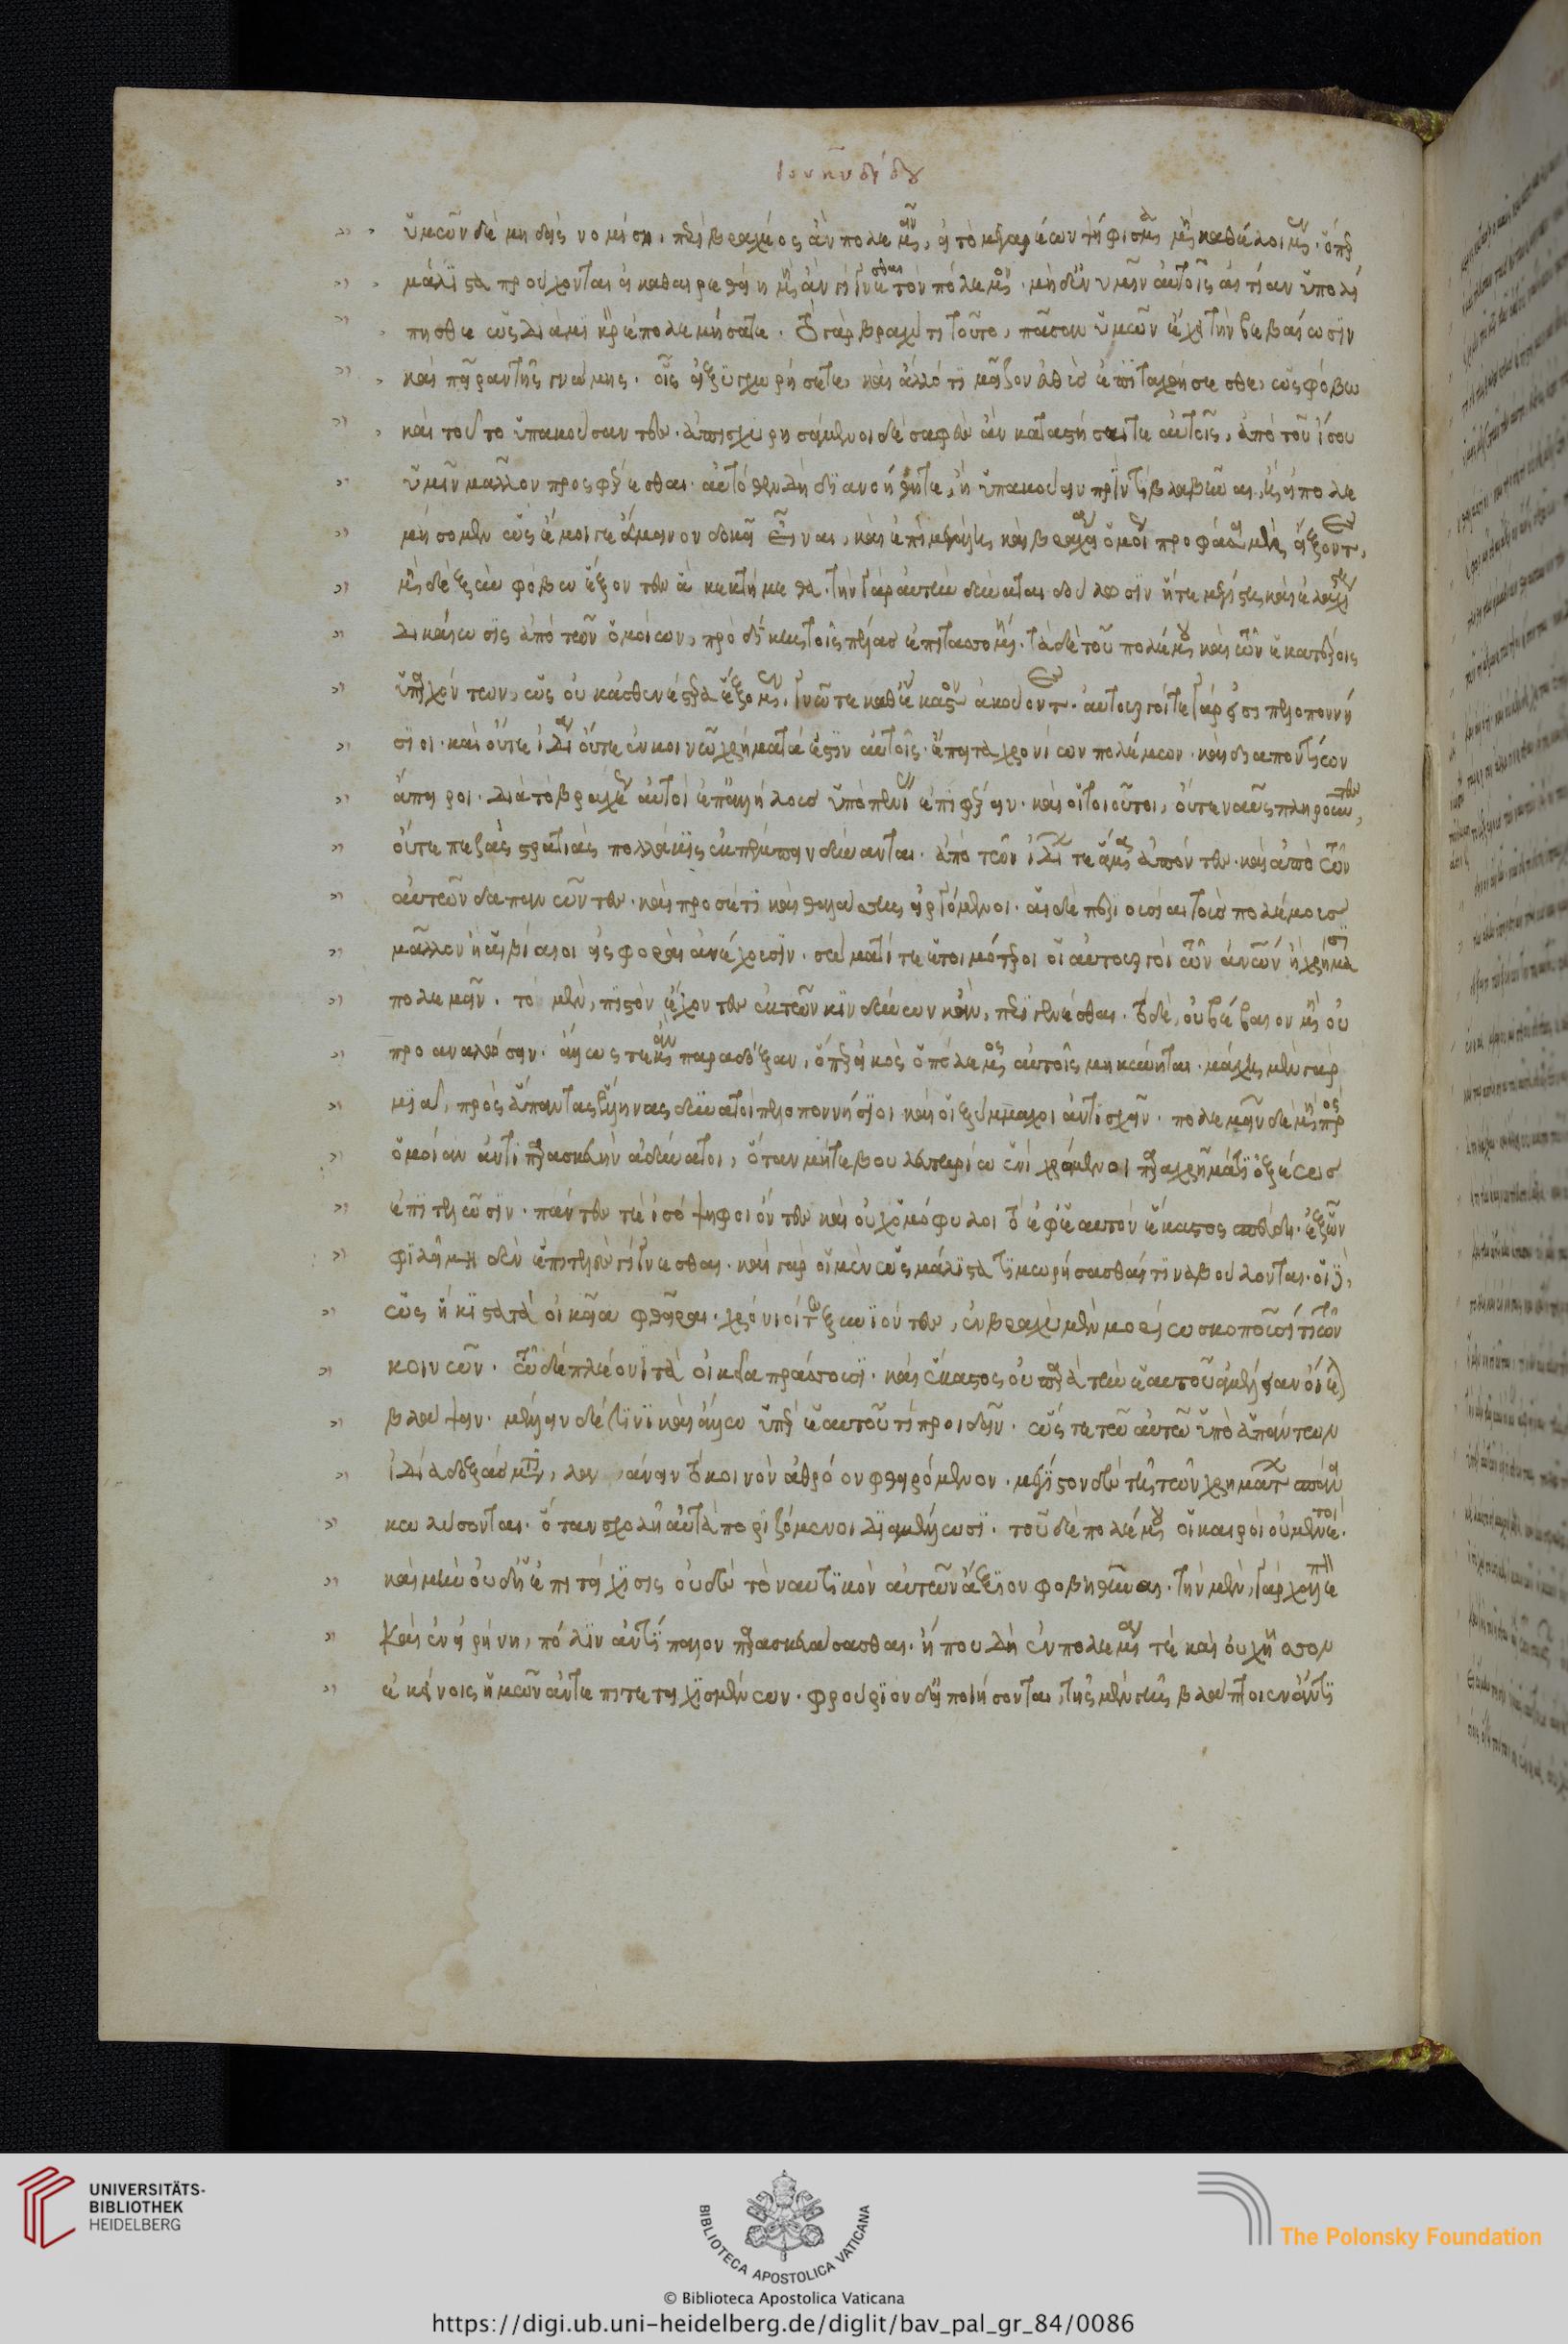 ὑμῶν δὲ μηδεὶς νομίσῃ, περὶ βραχέος ἂν πολεμεῖν, εἰ τὸ μεγαρέων ψήφισμα μὴ καθέλοιμεν· ὅπερ
μάλιστα προύχονται εἰ καθαιρεθείη μὴ ἂν γίγνεσθαι τὸν πόλεμον· μηδὲν ὑμῖν αὐτοῖς αἰτίαν ὑπολί
πησθε ὡς διὰ μικρὸν ἐπολεμήσατε. τὸ γὰρ βραχύ τι τοῦτο, πᾶσαν ὑμῶν ἔχει τὴν βεβαίωσιν
καὶ πεῖραν τῆς γνώμης. οἷς εἰ ξυγχωρήσετε, καὶ ἄλλό τι μεῖζον εὐθὺς ἐπιταχθήσεσθε, ὡς φόβω
καὶ τοῦτο ὑπακούσαντες· ἀπισχυρησάμενοι δὲ σαφὲς ἂν καταστήσαιτε αὐτοῖς, ἀπὸ τοῦ ἴσου
ὑμῖν μᾶλλον προσφέρεσθαι· αὐτόθεν δὴ διανοήθητε, ἢ ὑπακούειν πρίν τι βλαβῆναι, ἢ εἰ πολε
μήσομεν ὡς ἔμοιγε ἄμεινον δοκεῖ εἶναι, καὶ ἐπὶ μεγάλῃ καὶ βραχεία ὁμοίως προφάσει μὴ εἴξοντες,
μηδὲ ξὺν φόβω ἕξοντες ἃ κεκτήμεθα· τὴν γὰρ αὐτὴν δύναται δούλωσιν ἥ τε μεγίστη καὶ ἐλαχίστη
δικαίωσις ἀπὸ τῶν ὁμοίων, πρὸ δίκης τοῖς πέλας ἐπιτασσομένη. τὰ δὲ τοῦ πολέμου καὶ τῶν ἑκατέροις
ὑπαρχόντων, ὡς οὐκ ἀσθενέστερα ἕξομεν, γνῶτε καθ' ἕκαστον ἀκούοντες· αὐτουργοί τε γάρ εἰσι πελοποννή
σιοι· καὶ οὔτε ἰδία οὔτε ἐν κοινῶ χρήματά ἐστιν αὐτοῖς· ἔπειτα χρονίων πολέμων· καὶ διαποντίων
ἄπειροι· διὰ τὸ βραχέως αὐτοὶ ἐπ' ἀλλήλους ὑπὸ πενίας ἐπιφέρειν· καὶ οἱ τοιοῦτοι, οὔτε ναῦς πληροῦντες,
οὔτε πεζὰς στρατιὰς πολλάκις ἐκπέμπειν δύνανται· ἀπὸ τῶν ἰδίων τε ἅμα ἀπόντες· καὶ ἀπὸ τῶν
αὑτῶν δαπανῶντες· καὶ προσέτι καὶ θαλάσσης εἰργόμενοι· αἱ δὲ περιουσίαι τοὺς πολέμους
μᾶλλον ἢ αἱ βίαιοι ἐσφοραὶ ἀνέχουσιν· σώμασί τε ἑτοιμότεροι οἱ αὐτουργοὶ τῶν ἀνθρώπων ἢ χρήμασι
πολεμεῖν· τὸ μὲν, πιστὸν ἔχοντες ἐκ τῶν κινδύνων κἂν, περιγενέσθαι· τὸ δὲ, οὐ βέβαιον μὴ οὐ
προαναλώσειν· ἄλλως τε κἂν παρὰ δόξαν, ὅπερ εἰκὸς ὁ πόλεμος αὐτοῖς μηκύνηται· μάχῃ μὲν γὰρ
μιᾷ, πρὸς ἅπαντας ἕλληνας δύνατοὶ πελοποννήσιοι καὶ οἱ ξύμμαχοι ἀντισχεῖν· πολεμεῖν δὲ μὴ πρὸς
ὁμοίαν ἀντιπαρασκευὴν ἀδύνατοι, ὅταν μήτε βουλευτηρίω ἑνὶ χρώμενοι παραχρῆμά τι ὀξέως
ἐπιτελῶσιν· πάντες τὲ ἰσόψηφοι ὄντες καὶ οὐχ ὁμόφυλοι τὸ ἐφ' ἑαυτὸν ἕκαστος σπεύδῃ· ἐξ ὧν
φιλεῖ μηδὲν ἐπιτελὲς γίγνεσθαι· καὶ γὰρ οἱ μὲν ὡς μάλιστα τιμωρήσασθαί τινα βούλονται· οἱ δὲ,
ὡς ἥκιστα τὰ οἰκεῖα φθεῖραι· χρόνιοί τε ξυνιόντες, ἐν βραχεῖ μὲν μορίω σκοποῦσί τι τῶν
κοινῶν· τῷ δὲ πλέονι τὰ οἰκεῖα πράσσουσι· καὶ ἕκαστος οὐ παρὰ τὴν ἑαυτοῦ ἀμέλειαν οἴεται
βλάψειν· μέλειν δέ τινι καὶ ἄλλω ὑπὲρ ἑαυτοῦ τι προϊδεῖν· ὥστε τῶ αὐτῶ ὑπὸ ἁπάντων
ἰδία δοξάσματι, λανθάνειν τὸ κοινὸν ἀθρόον φθειρόμενον· μέγιστον δὲ τῇ τῶν χρημάτων σπάνει
κωλύσονται· ὅταν σχολῇ αὐτὰ ποριζόμενοι διαμέλλωσι· τοῦ δὲ πολέμου οἱ καιροὶ οὐ μενετοί·
καὶ μὴν οὐδ' ἡ ἐπιτείχισις οὐδὲ τὸ ναυτικὸν αὐτῶν ἄξιον φοβηθῆναι· τὴν μὲν, γὰρ χαλεπὸν
καὶ ἐν εἰρήνῃ, πόλιν ἀντίπαλον παρασκευάσασθαι· ἦ που δὴ ἐν πολεμία τὲ καὶ οὐχ ἧσσον
ἐκείνοις ἡμῶν ἀντεπιτετειχισμένων· φρούριον δ' εἰ ποιήσονται, τῆς μὲν γῆς βλάπτοιεν ἄν τι
UNIVERSITÄTS-
BIBLIOTHEK
HEIDELBERG
BIBLIOTECA APOSTOLICA VATICANA
The Polonsky Foundation
© Biblioteca Apostolica Vaticana
https://digi.ub.uni-heidelberg.de/diglit/bav_pal_gr_84/0086